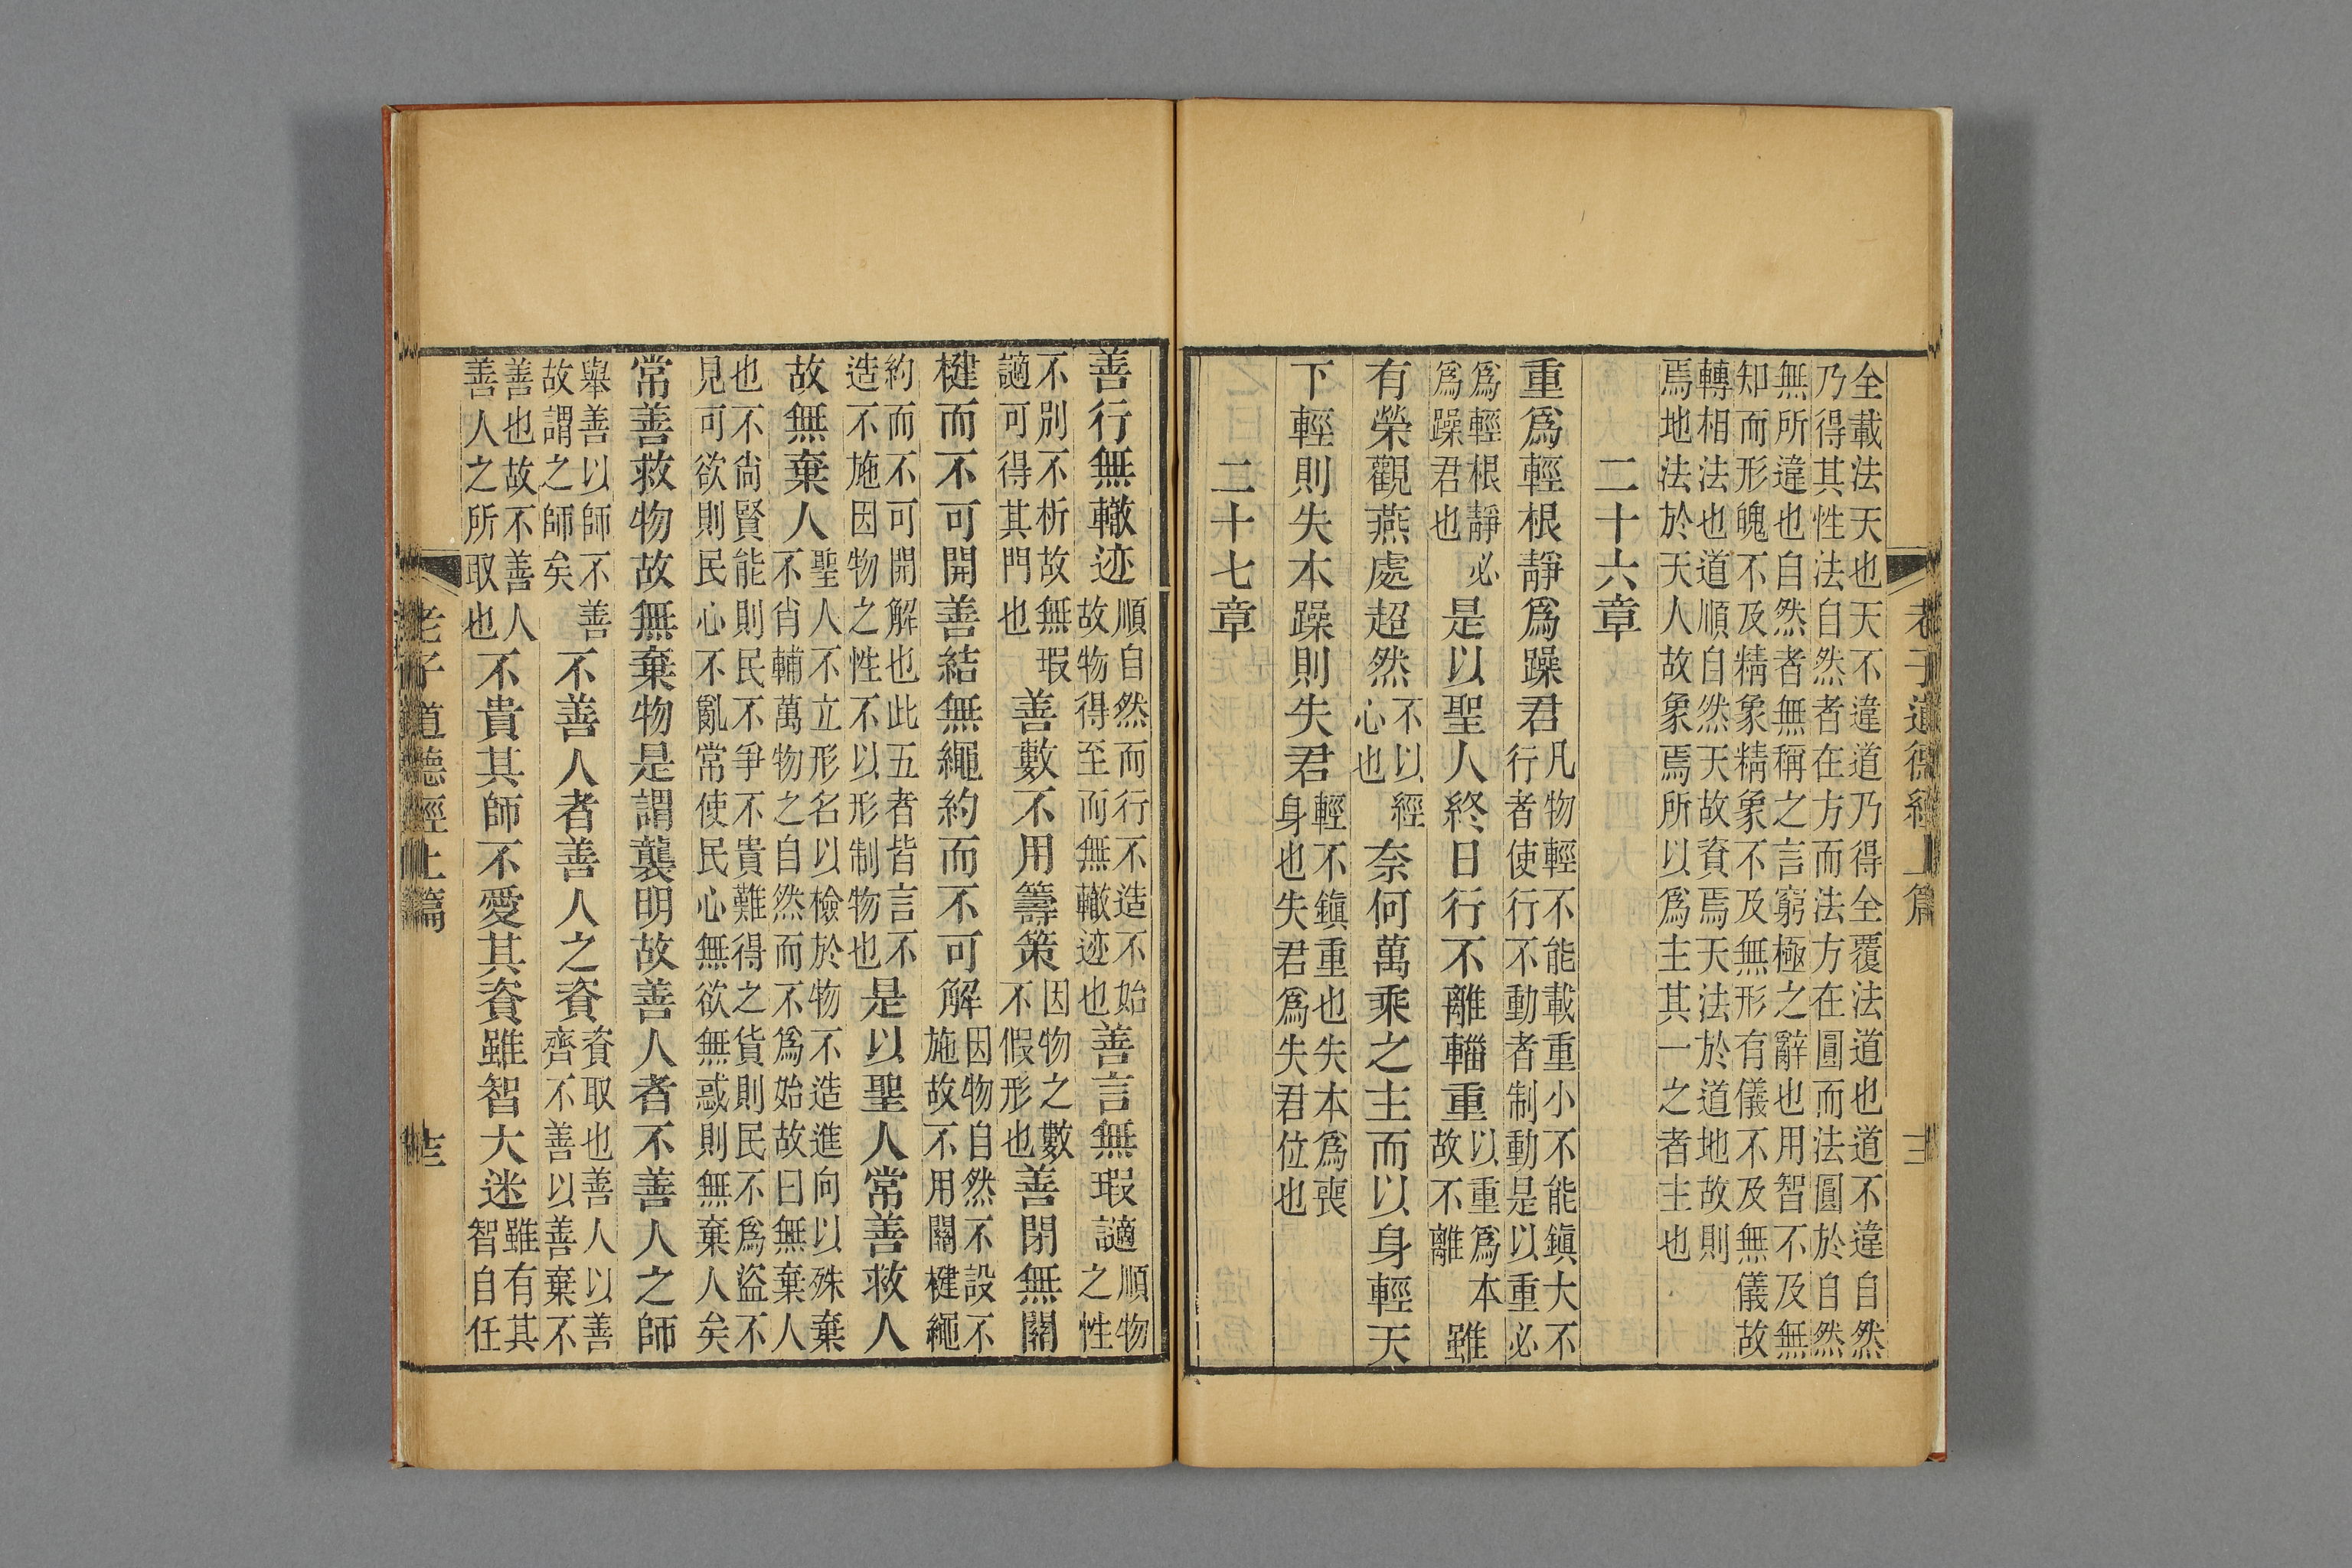 老子道德經上篇
全載法天也天不違道乃得全覆法道也道不違自然
乃得其性法自然者在方而法方在圓而法圓於自然
無所違也自然者無稱之言窮極之辭也用智不及無
知而形魄不及精象精象不及無形有儀不及無儀故
轉相法也道順自然天故資焉天法於道地故則
焉地法於天人故象焉所以爲主其一之者主也
二十六章
重爲輕根靜爲躁君凡物輕不能載重小不能鎭大不行者使行不動者制動是以重必
爲輕根靜必爲躁君也是以聖人終日行不離輜重以重爲本故不離雖
有榮觀燕處超然不以經心也奈何萬乘之主而以身輕天
下輕則失本躁則失君輕不鎭重也失本爲喪身也失君爲失君位也
二十七章
善行無轍迹順自然而行不造不始故物得至而無轍迹也善言無瑕讁順物之性
不別不析故無瑕讁可得其門也善數不用籌策因物之數不假形也善閉無關
楗而不可開善結無繩約而不可解因物自然不設不施故不用關楗繩
約而不可開解也此五者皆言不造不施因物之性不以形制物也是以聖人常善救人
故無棄人聖人不立形名以檢於物不造進向以殊棄不肖輔萬物之自然而不爲始故曰無棄人
也不尙賢能則民不爭不貴難得之貨則民不爲盜不見可欲則民心不亂常使民心無欲無惑則無棄人矣
常善救物故無棄物是謂襲明故善人者不善人之師
舉善以師不善故謂之師矣不善人者善人之資資取也善人以善齊不善以善棄不
善也故不善人善人之所取也不貴其師不愛其資雖智大迷雖有其智自任
老子道德經上篇
十三